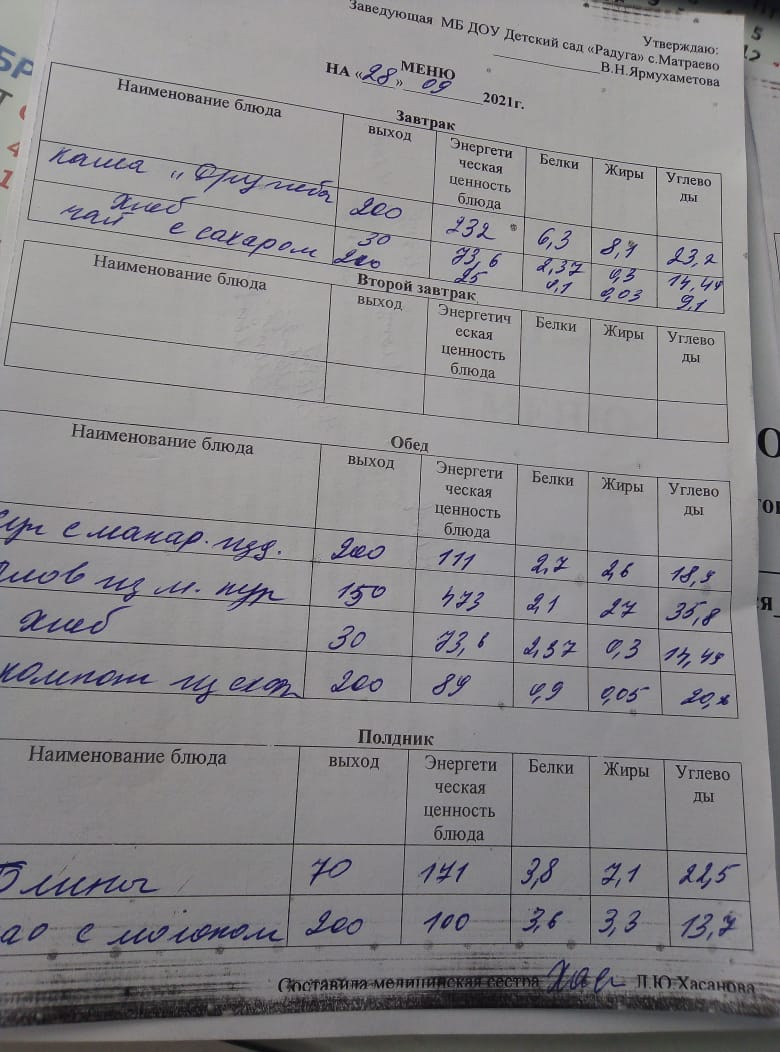 Утверждаю:
Заведующая МБ ДОУ Детский сад «Радуга» с.Матраево
В.Н.Ярмухаметова
МЕНЮ
НА «28» 09 2021г.
Завтрак
Наименование блюда выход Энергети ческая ценность блюда Белки Жиры Углево ды
каша „Дружба 200 232 6,3 8,1 23,2
хлеб 30 73,6 2,37 0,3 14,49
чай с сахаром 200 25 0,1 0,03 9,1
Второй завтрак
Наименование блюда выход Энергетич еская ценность блюда Белки Жиры Углево ды
Обед
Наименование блюда выход Энергети ческая ценность блюда Белки Жиры Углево ды
суп с макар. изд. 200 111 2,7 2,6 18,9
плов из м. кур 150 473 21 27 35,8
хлеб 30 73,6 2,37 0,3 14,49
компот из сух 200 89 0,9 0,05 20,2
Полдник
Наименование блюда выход Энергети ческая ценность блюда Белки Жиры Углево ды
Блины 70 171 3,8 7,1 22,5
ао с молоком 200 100 3,6 3,3 13,7
Составила медицинская сестра Л.Ю.Хасанова